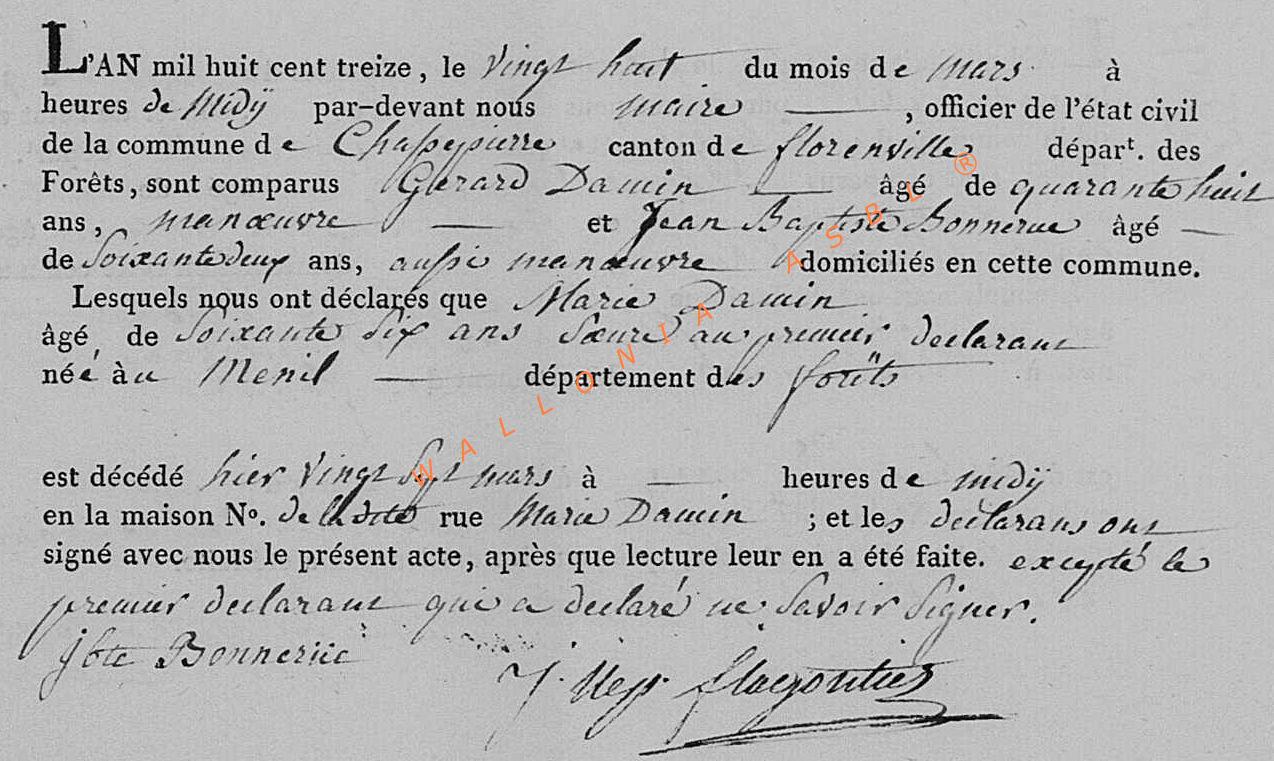 L'AN mil huit cent treize, le vingt huit du mois de mars à
heures de Midÿ par-devant nous maire , officier de l'état civil
de la commune de Chassepierre canton de florenville départ. des
Forêts, sont comparus Gerard Damin âgé de quarante huit
ans, manœuvre et Jean Baptiste Bonnerue âgé
de Soixante deux ans, aussi manœuvre domiciliés en cette commune.
Lesquels nous ont déclarés que Marie Damin
âgé de Soixante Six ans Sœure au premier declarant
née au Menil département des forêts
est décédé hier vingt Sept mars à heures de midÿ
en la maison No. de ladite rue Marie Damin ; et les declarans ont
signé avec nous le présent acte, après que lecture leur en a été faite. excepté le
premier declarant qui a declaré ne Savoir Signer.
Jbte Bonnerüe
WALLONIA ASBL ®